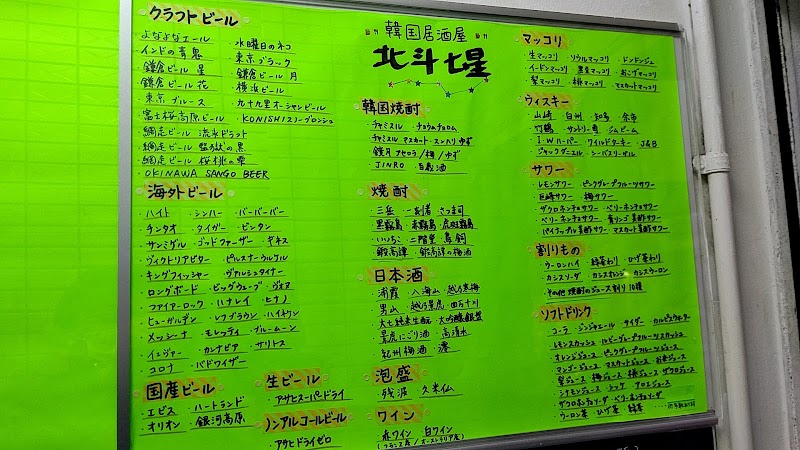 クラフトビール
・よなよなエール ・水曜日のネコ
・インドの青鬼 ・東京ブラック
・鎌倉ビール 星 ・鎌倉ビール 月
・鎌倉ビール 花 ・横浜ビール
・東京ブルース ・九十九里オーシャンビール
・富士桜高原ビール ・KONISHIスリーブロンシュ
・網走ビール 流氷ドラフト
・網走ビール
・網走ビール 桜桃の雫
・OKINAWA SANGO BEER
海外ビール
・ハイト ・シンハー ・バーバーバー
・チンタオ ・タイガー ・ビンタン
・サンミゲル ・ゴッドファーザー ・ギネス
・ヴィクトリアビター ・ピルスナーウルケル
・キングフィッシャー ・ヴァルシュタイナー
・ロングボード ・ビッグウェーブ
・ファイアーロック ・ハナレイ ・ヒナノ
・ヒューガルデン ・レフブラウン ・ハイネケン
・メッシーナ ・モレッティ ・ブルームーン
・イェヴァー ・カンナビア ・サリトス
・コロナ ・バドワイザー
国産ビール
・エビス ・ハートランド
・オリオン ・銀河高原
生ビール
・アサヒスーパードライ
ノンアルコールビール
・アサヒドライゼロ
韓国居酒屋
北斗七星
韓国焼酎
・チャミスル ・チョウムチョロム
・チャミスル マスカット・スンハリ ゆず
・鏡月 アセロラ/梅/ゆず
・JINRO ・百歳酒
焼酎
・三岳 ・一刻者 ・さつま司
・黒霧島 ・赤霧島 ・虎斑霧島
・いいちこ ・二階堂 ・鳥飼
・鍛高譚 ・鍛高譚の梅酒
日本酒
・浦霞 ・八海山 ・越乃寒梅
・男山 ・越乃景虎 ・四万十川
・大七純米生酛 ・大吟醸
・景虎にごり酒 ・高清水
・紀州梅酒 ・澪
泡盛
・残波 ・久米仙
ワイン
・赤ワイン ・白ワイン
(フランス産/オーストラリア産)
マッコリ
・生マッコリ ・ソウルマッコリ ・ドンドンジュ
・イードンマッコリ ・黒豆マッコリ ・おこげマッコリ
・梨マッコリ ・桃マッコリ ・マスカットマッコリ
ウィスキー
・山崎 ・白州 ・知多 ・余市
・竹鶴 ・サントリー響 ・ジムビーム
・I.W.ハーパー ・ワイルドターキー ・J&B
・ジャックダニエル ・シーバスリーガル
サワー
・レモンサワー ・ピンクグレープフルーツサワー
・巨峰サワー ・梅サワー
・ザクロホンチョサワー ・ベリーホンチョサワー
・ベリーホンチョサワー ・青リンゴ美酢サワー
・パイナップル美酢サワー ・マスカット美酢サワー
割りもの
・ウーロンハイ ・緑茶わり ・ひげ茶わり
・カシスソーダ ・カシスオレンジ ・カシスウーロン
・その他 焼酎のジュース割り 10種
ソフトドリンク
・コーラ ・ジンジャエール ・サイダー ・カルピスウォーター
・レモンスカッシュ ・ルビーグレープフルーツスカッシュ
・オレンジジュース ・ピンクグレープフルーツジュース
・マンゴージュース ・マスカットジュース ・お米ジュース
・梨ジュース ・梅ジュース ・桃ジュース ・ザクロジュース
・シナモンジュース ・シッケ ・アロエジュース
・ザクロホンチョソーダ ・ベリーホンチョソーダ
・ウーロン茶 ・ひげ茶 ・緑茶